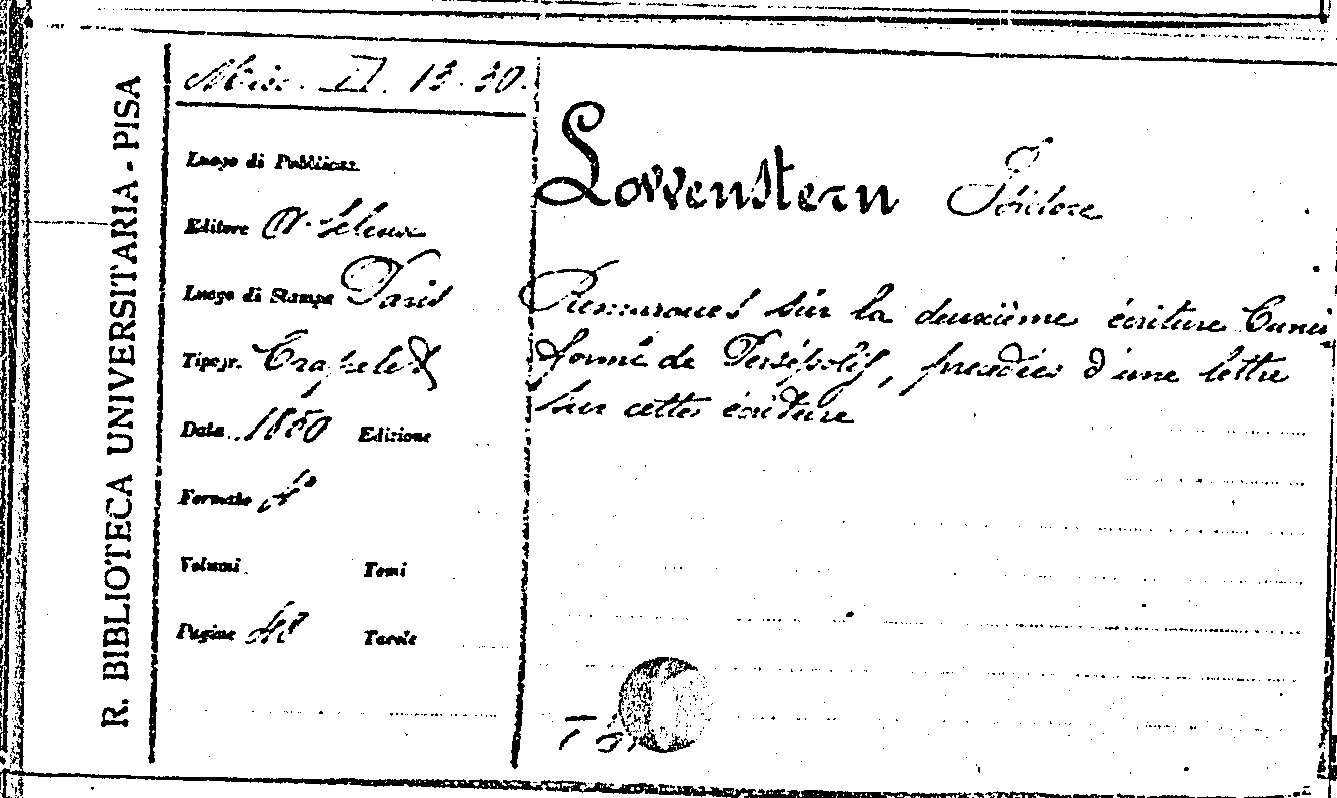 R. BIBLIOTECA UNIVERSITARIA - PISA
Misc. II. 13. 30.
Luogo di Pubblicaz.
Editore A. Leleux
Luogo di Stampa Paris
Tipogr. Crapelet
Data 1850 Edizione
Formato 4°
Volumi Tomi
Pagine 48 Tavole
Lowenstern Isidore
Remarques sur la deuxième écriture Cunéi
forme de Persépolis, précédées d'une lettre
sur cette écriture